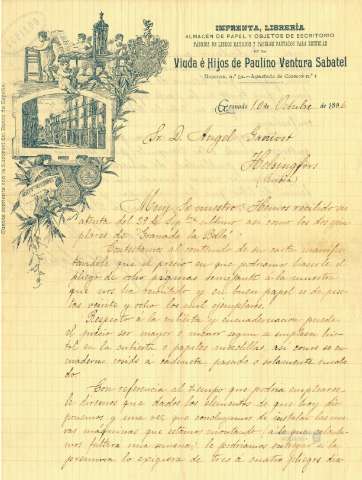 IMPRENTA, LIBRERÍA
ALMACÉN DE PAPEL Y OBJETOS DE ESCRITORIO
FÁBRICA DE LIBROS RAYADOS Y
DE LA
Viuda é Hijos de Paulino Ventura Sabatel
Granada 10 de Octubre de 1896
Sr. D. Angel Ganivet
Helsingfors
(Rusia)
Muy Sr nuestro: Hemos recibido su
atenta del 29 de Sepbre último así como los dos ejem-
plares de "Granada la Bella"
Contestamos al contenido de su carta manifes-
tándole que el precio en que podríamos hacerle el
pliego de ocho páginas semejante a la muestra
que nos ha remitido y en buen papel es de pese-
tas veinte y ocho los mil ejemplares.
Respecto a la cubierta y encuadernacion puede
el precio ser mayor o menor segun se emplee
en la cubierta o papeles sencillos así como se en-
cuaderne cosido a pasado o solamente
do
Con referencia al tiempo que podria emplearse
le diremos que dados los elementos de que hoy dis-
ponemos y una vez que concluyamos de instalar las nue-
vas maquinas que estamos montando, a lo que
faltará una semana, le podriamos entregar si la
premura lo exigiera de tres a cuatro pliegos dia-